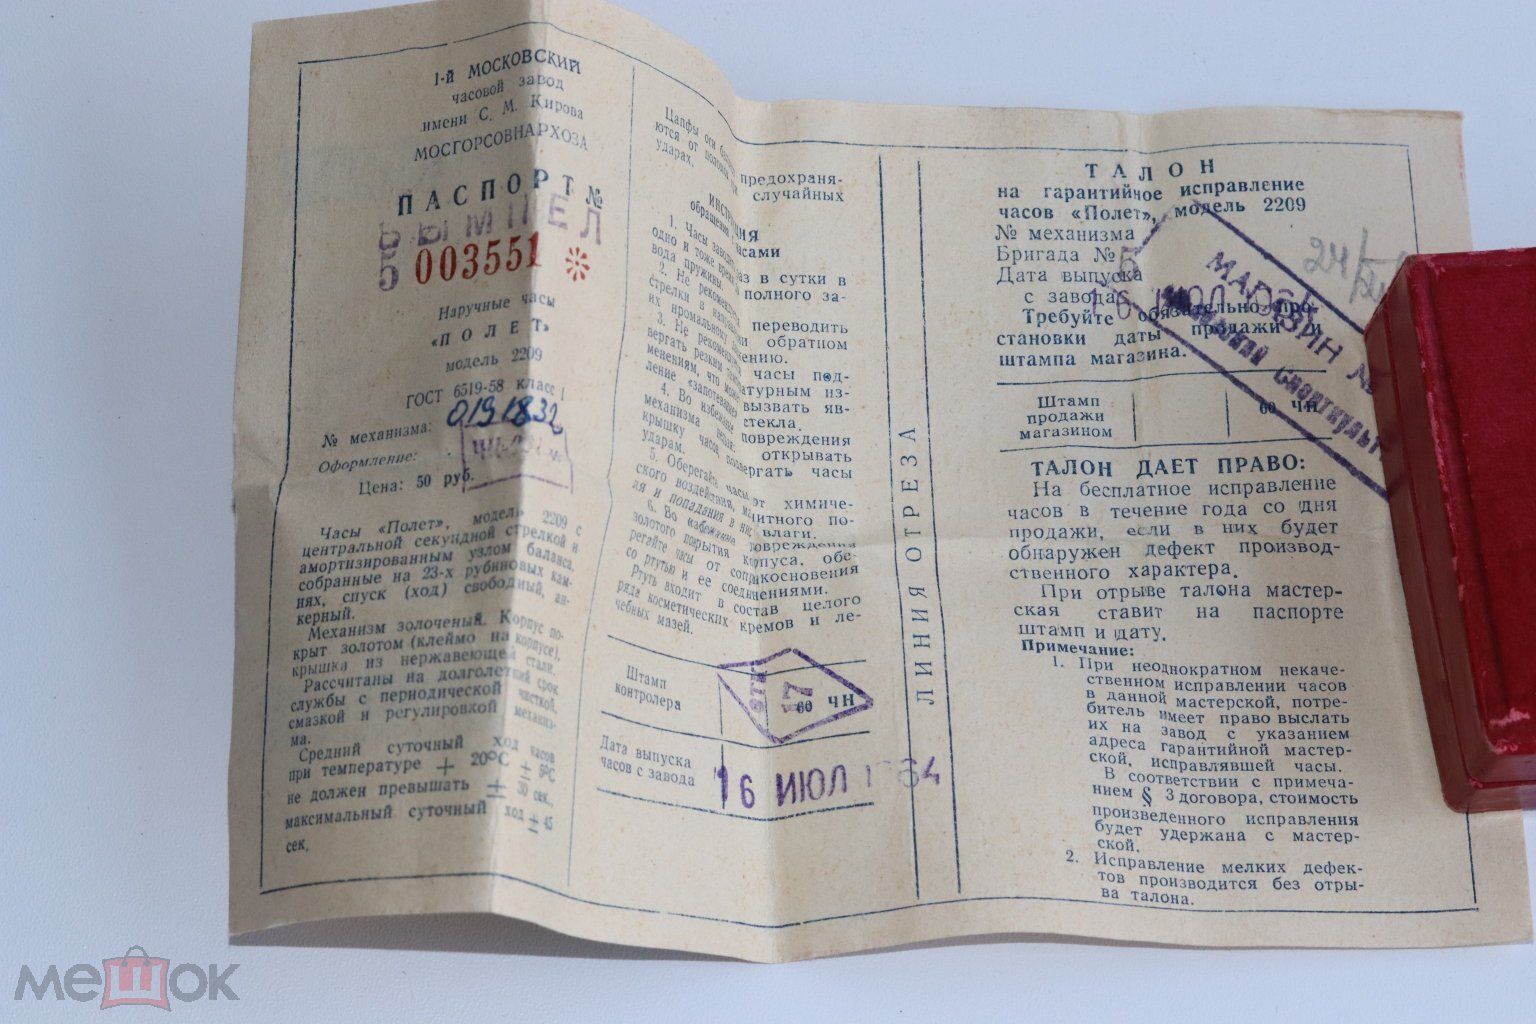 1-й МОСКОВСКИЙ
часовой завод
имени С. М. Кирова
МОСГОРСОВНАРХОЗА
ПАСПОРТ №
ВЫМПЕЛ
5 003551 *
Наручные часы
«ПОЛЕТ»
модель 2209
ГОСТ 6519-58 класс I
№ механизма: 0191832
Оформление:
Цена: 50 руб.
Часы «Полет», модель 2209 с
центральной секундной стрелкой и
амортизированным узлом баланса,
собранные на 23-х рубиновых кам-
нях, спуск (ход) свободный, ан-
керный.
Механизм золоченый. Корпус по-
крыт золотом (клеймо на корпусе),
крышка из нержавеющей стали.
Рассчитаны на долголетний срок
службы с периодической чисткой,
смазкой и регулировкой механиз-
ма.
Средний суточный ход часов
при температуре + 20°С ± 5°С
не должен превышать ± 30 сек.,
максимальный суточный ход ± 45
сек.
Цапфы оси предохраня-
ются от случайных
ударах.
ИНСТРУКЦИЯ
обращения с часами
1. Часы заводить раз в сутки в
одно и тоже время до полного за-
вода пружины.
2. Не рекомендуется переводить
стрелки в направлении обратном
их нромальному движению.
3. Не рекомендуется часы под-
вергать резким температурным из-
менениям, что может вызвать яв-
ление «запотевания» стекла.
4. Во избежание повреждения
механизма открывать
крышку часов, подвергать часы
ударам.
5. Оберегайте часы от химиче-
ского воздействия, магнитного по-
ля и попадания в них влаги.
6. Во избежание повреждения
золотого покрытия корпуса, обе-
регайте часы от соприкосновения
со ртутью и ее соединениями.
Ртуть входит в состав целого
ряда косметических кремов и ле-
чебных мазей.
Штамп
контролера
ОТК
17
60 ЧН
Дата выпуска
часов с завода
16 ИЮЛ 1964
ЛИНИЯ ОТРЕЗА
ТАЛОН
на гарантийное исправление
часов «Полет», модель 2209
№ механизма
Бригада № 5
Дата выпуска
с завода 16 ИЮЛ
Требуйте обязательно про-
становки даты продажи и
штампа магазина.
МАГАЗИН №
Штамп
продажи
магазином
60 ЧН
ТАЛОН ДАЕТ ПРАВО:
На бесплатное исправление
часов в течение года со дня
продажи, если в них будет
обнаружен дефект производ-
ственного характера.
При отрыве талона мастер-
ская ставит на паспорте
штамп и дату.
Примечание:
1. При неоднократном некаче-
ственном исправлении часов
в данной мастерской, потре-
битель имеет право выслать
их на завод с указанием
адреса гарантийной мастер-
ской, исправлявшей часы.
В соответствии с примеча-
нием § 3 договора, стоимость
произведенного исправления
будет удержана с мастер-
ской.
2. Исправление мелких дефек-
тов производится без отры-
ва талона.
мешок